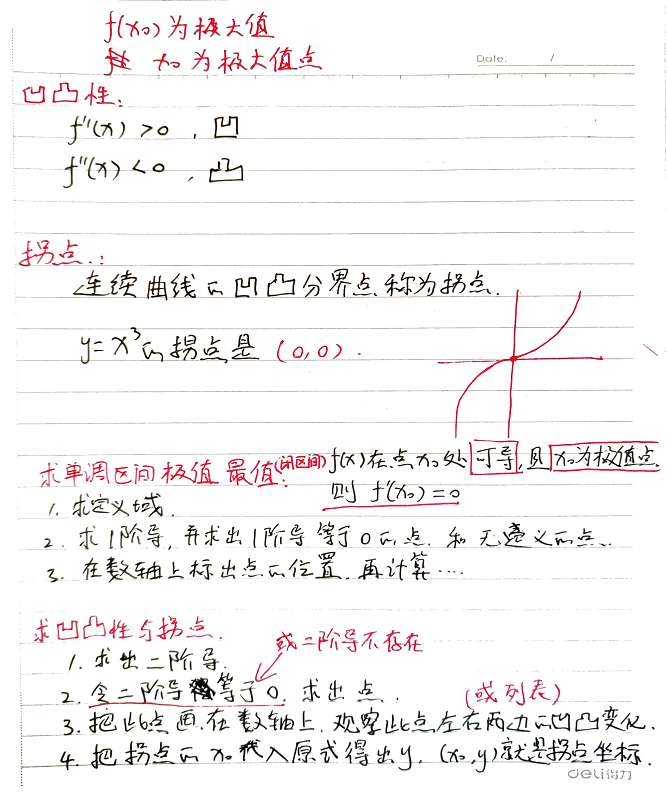 f(x₀)为极大值
x₀ 为极大值点
Date. /
凹凸性:
f''(x) >0 , 凹
f''(x) <0 , 凸
拐点:
连续曲线的凹凸分界点称为拐点.
y=x³的拐点是 (0,0).
求单调区间 极值 最值(闭区间): f(x)在点x₀处可导,且x₀为极值点.
则 f'(x₀)=0
1. 求定义域.
2. 求1阶导, 并求出1阶导等于0的点. 和无意义的点.
3. 在数轴上标出点的位置. 再计算....
求凹凸性与拐点.
或二阶导不存在
1. 求出二阶导.
2. 令二阶导等于0. 求出点. (或列表)
3. 把此点画在数轴上. 观察此点左右两边的凹凸变化.
4. 把拐点的x₀代入原式得出y. (x₀,y)就是拐点坐标.
deli得力